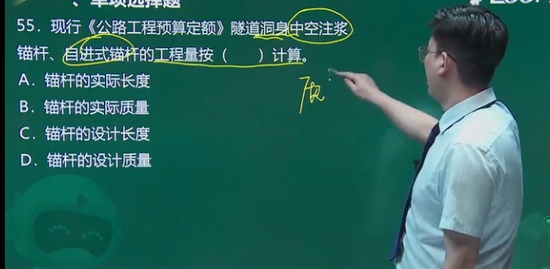 、单项选择题
55．现行《公路工程预算定额》隧道洞身中空注浆
锚杆、自进式锚杆的工程量按（　　）计算。
A．锚杆的实际长度
B．锚杆的实际质量
C．锚杆的设计长度
D．锚杆的设计质量